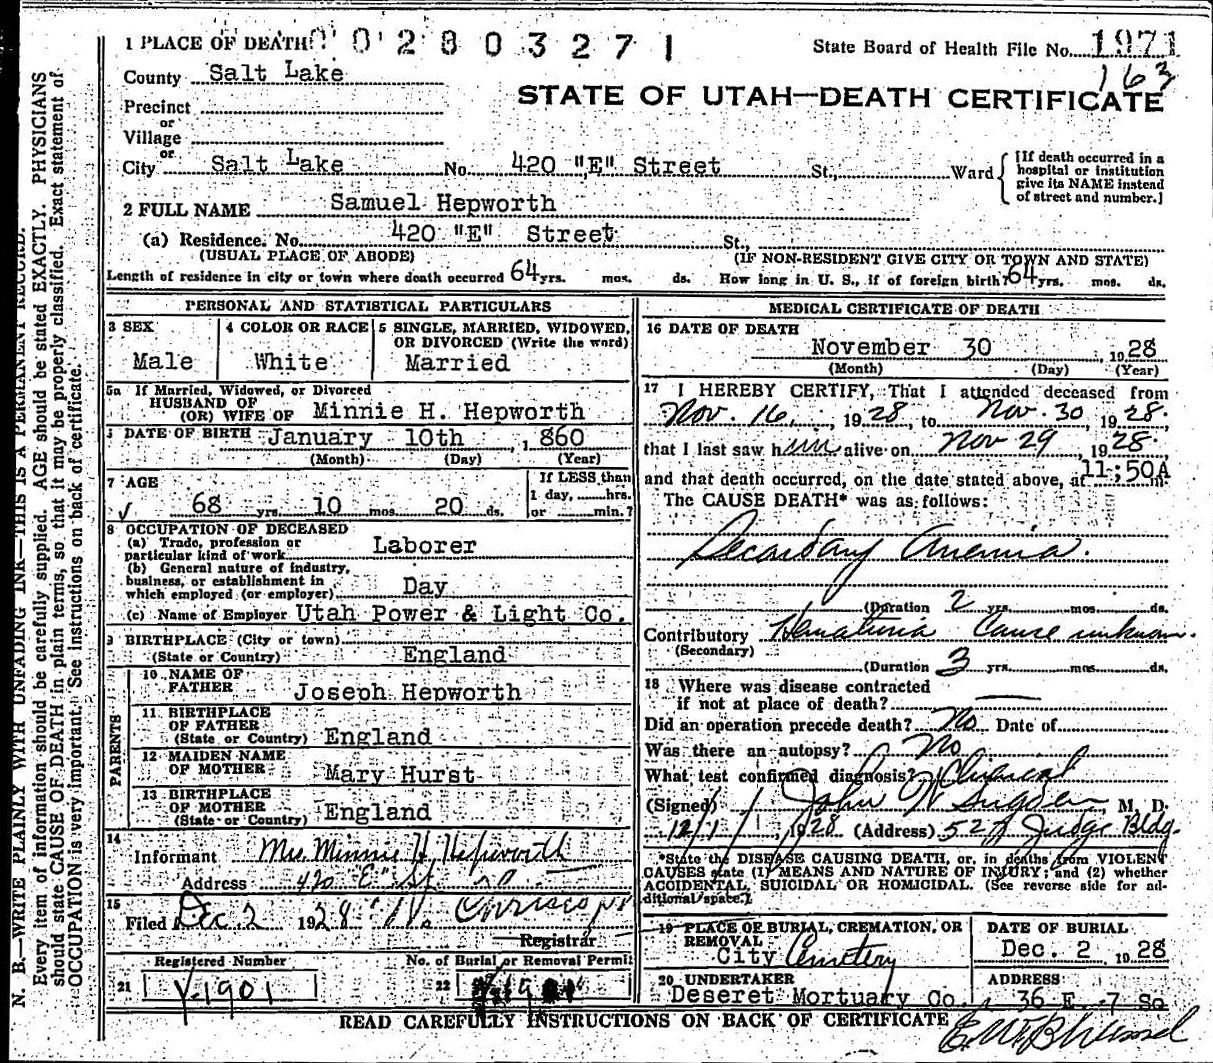 1 PLACE OF DEATH 0 0 2 8 0 3 2 7 1
State Board of Health File No. 1971
163
County Salt Lake
STATE OF UTAH—DEATH CERTIFICATE
Precinct
or
Village
or
City Salt Lake No. 420 "E" Street St., Ward
[If death occurred in a
hospital or institution
give its NAME instead
of street and number.]
2 FULL NAME Samuel Hepworth
(a) Residence. No. 420 "E" Street St.,
(USUAL PLACE OF ABODE) (IF NON-RESIDENT GIVE CITY OR TOWN AND STATE)
Length of residence in city or town where death occurred 64 yrs. mos. ds. How long in U. S., if of foreign birth? 64 yrs. mos. ds.
PERSONAL AND STATISTICAL PARTICULARS
3 SEX
Male
4 COLOR OR RACE
White
5 SINGLE, MARRIED, WIDOWED,
OR DIVORCED (Write the word)
Married
5a If Married, Widowed, or Divorced
HUSBAND OF
(OR) WIFE OF Minnie H. Hepworth
DATE OF BIRTH January 10th, 1860
(Month) (Day) (Year)
7 AGE
68 yrs. 10 mos. 20 ds.
If LESS than
1 day, hrs.
or min.?
8 OCCUPATION OF DECEASED
(a) Trade, profession or
particular kind of work Laborer
(b) General nature of industry,
business, or establishment in
which employed (or employer) Day
(c) Name of Employer Utah Power & Light Co.
9 BIRTHPLACE (City or town)
(State or Country) England
PARENTS
10 NAME OF
FATHER Joseph Hepworth
11 BIRTHPLACE
OF FATHER
(State or Country) England
12 MAIDEN NAME
OF MOTHER Mary Hurst
13 BIRTHPLACE
OF MOTHER
(State or Country) England
14
Informant Mrs. Minnie H. Hepworth
Address 420 "E" St.
15
Filed Dec 2 1928
Registrar
Registered Number No. of Burial or Removal Permit
21 Y-1901 22
MEDICAL CERTIFICATE OF DEATH
16 DATE OF DEATH
November 30, 1928
(Month) (Day) (Year)
17 I HEREBY CERTIFY, That I attended deceased from
Nov. 16, 1928, to Nov. 30, 1928.
that I last saw him alive on Nov 29 1928.
and that death occurred, on the date stated above, at 11:50A m.
The CAUSE DEATH* was as follows:
Secondary Anemia.
(Duration 2 yrs. mos. ds.
Contributory Hematuria Cause unknown.
(Secondary)
(Duration 3 yrs. mos. ds.
18 Where was disease contracted
if not at place of death?
Did an operation precede death? No Date of
Was there an autopsy? No
What test confirmed diagnosis? Clinical
(Signed) John W Sugden M. D.
12/1/1928 (Address) 527 Judge Bldg.
*State the DISEASE CAUSING DEATH, or, in deaths from VIOLENT
CAUSES state (1) MEANS AND NATURE OF INJURY; and (2) whether
ACCIDENTAL, SUICIDAL OR HOMICIDAL. (See reverse side for ad-
ditional space.)
19 PLACE OF BURIAL, CREMATION, OR
REMOVAL
City Cemetery
DATE OF BURIAL
Dec. 2 1928
20 UNDERTAKER
Deseret Mortuary Co.
ADDRESS
36 E. 7 So
READ CAREFULLY INSTRUCTIONS ON BACK OF CERTIFICATE
N. B.—WRITE PLAINLY WITH UNFADING INK—THIS IS A PERMANENT RECORD.
Every item of information should be carefully supplied. AGE should be stated EXACTLY. PHYSICIANS
should state CAUSE OF DEATH in plain terms, so that it may be properly classified. Exact statement of
OCCUPATION is very important. See instructions on back of certificate.